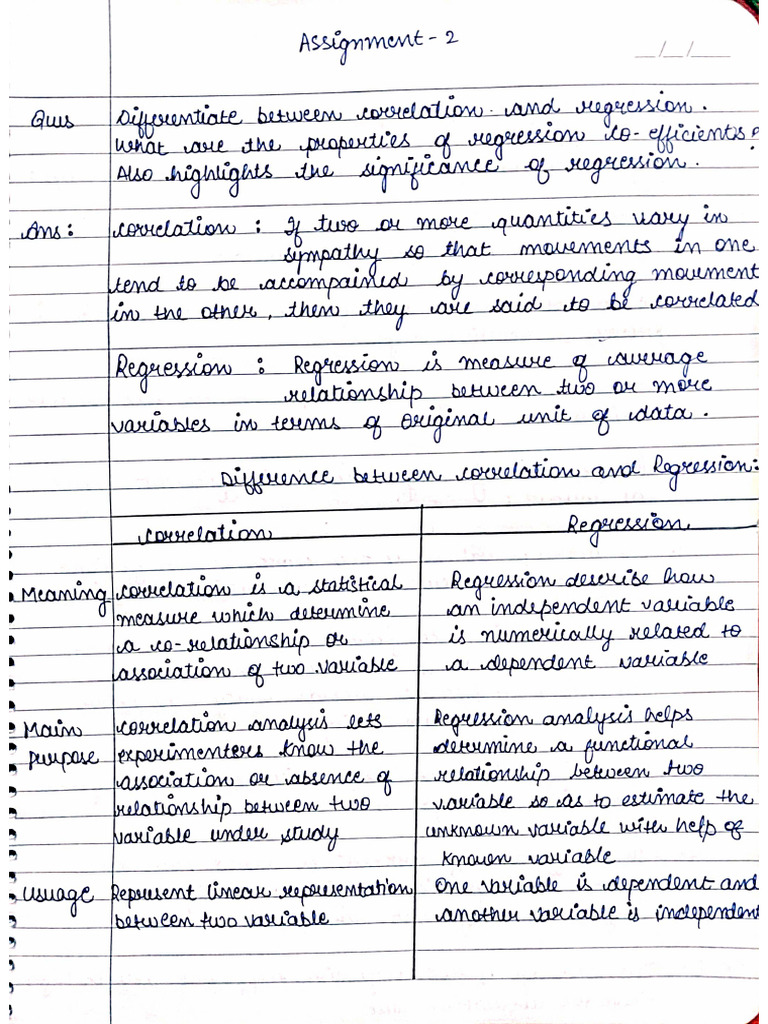 Assignment - 2
__/__/____
Ques Differentiate between correlation and regression.
What are the properties of regression co-efficients?
Also highlights the significance of regression.
Ans: Correlation : If two or more quantities vary in
sympathy so that movements in one
tend to be accompained by corresponding movement
in the other, then they are said to be correlated
Regression : Regression is measure of average
relationship between two or more
variables in terms of original unit of data.
Difference between correlation and Regression:
Correlation Regression
Meaning
Correlation is a statistical
measure which determine
a co-relationship or
association of two variable
Regression describe how
an independent variable
is numerically related to
a dependent variable
Main
purpose
Correlation analysis lets
experimenters know the
association or absence of
relationship between two
variable under study
Regression analysis helps
determine a functional
relationship between two
variable so as to estimate the
unknown variable with help of
known variable
Usuage
Represent linear representation
between two variable
One variable is dependent and
another variable is independent